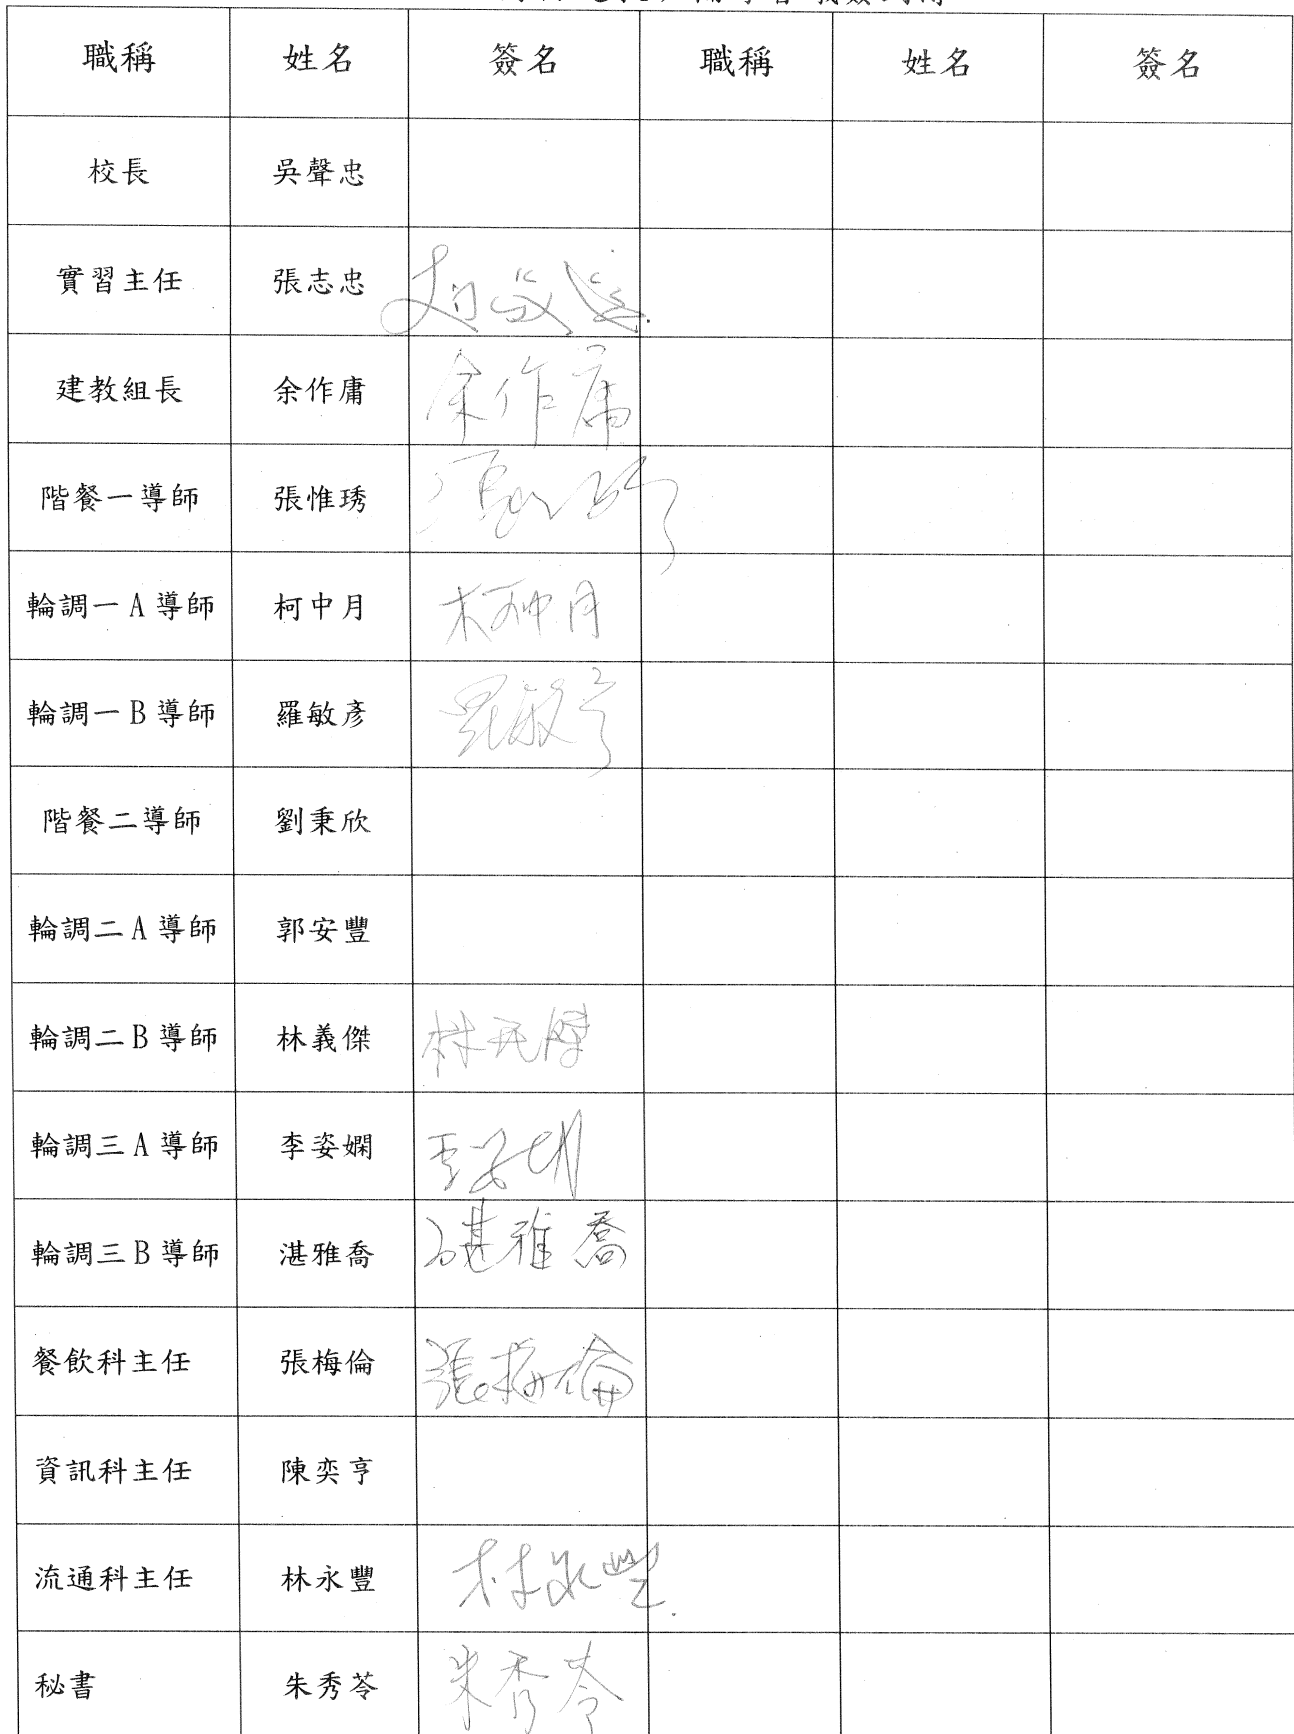 職稱 姓名 簽名 職稱 姓名 簽名
校長 吳聲忠
實習主任 張志忠
建教組長 余作庸 余作庸
階餐一導師 張惟琇
輪調一A導師 柯中月 柯仲月
輪調一B導師 羅敏彥 羅敏彥
階餐二導師 劉秉欣
輪調二A導師 郭安豐
輪調二B導師 林義傑
輪調三A導師 李姿嫻
輪調三B導師 湛雅喬 諶雅喬
餐飲科主任 張梅倫 張梅倫
資訊科主任 陳奕亨
流通科主任 林永豐 林永豐
秘書 朱秀苓 朱秀苓